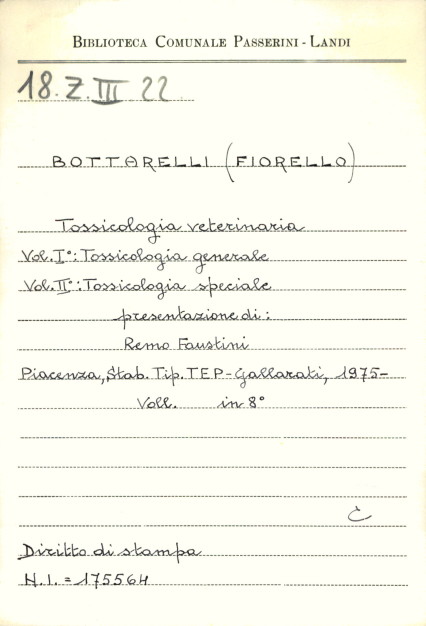 BIBLIOTECA COMUNALE PASSERINI - LANDI
18. Z. III 22
BOTTARELLI (FIORELLO)
Tossicologia veterinaria
Vol. I°: Tossicologia generale
Vol. II°: Tossicologia speciale
presentazione di:
Remo Faustini
Piacenza, Stab. Tip. TEP - Gallarati, 1975-
Voll. in 8°
Diritto di stampa
N.I. = 175564